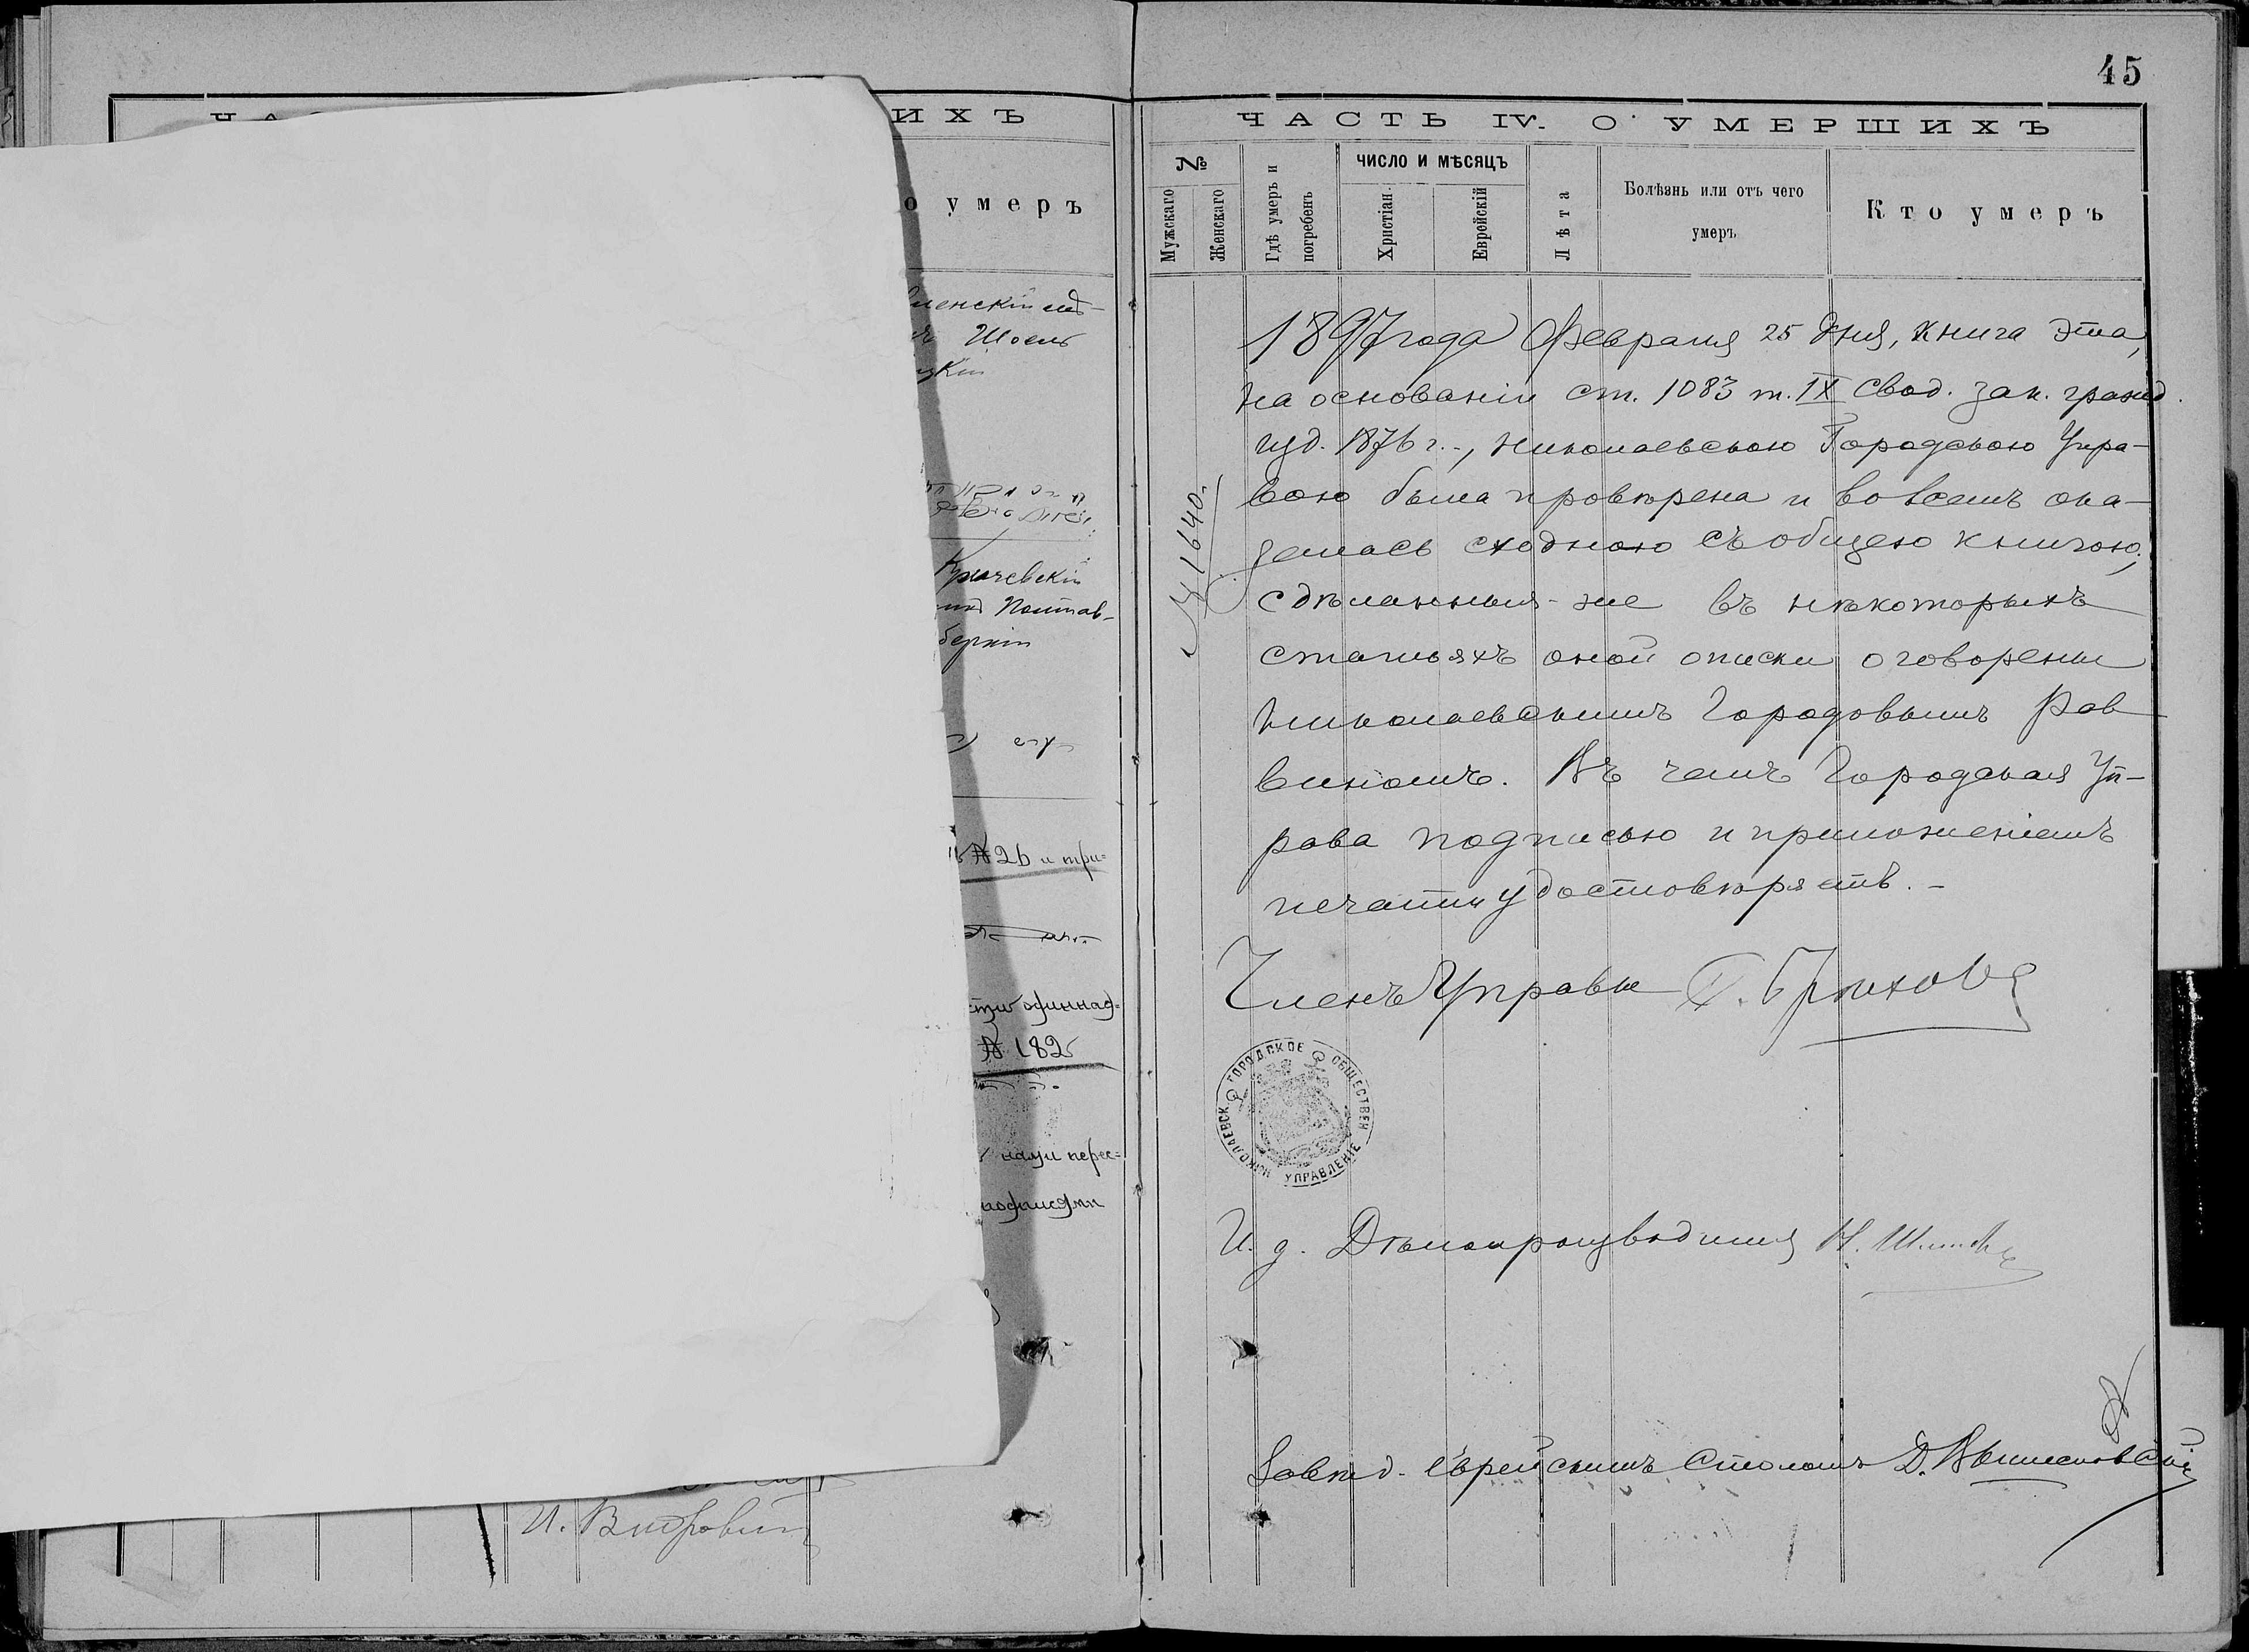 ИХЪ
о умеръ
Шоель
Кричевскій
Полтав-
№ 26 и три=
одиннад=
№ 182
нами перес=
подписями
45
ЧАСТЬ IV. О УМЕРШИХЪ
№
Мужскаго
Женскаго
Гдѣ умеръ и погребенъ
ЧИСЛО И МѢСЯЦЪ
Христіан.
Еврейскій
Лѣта
Болѣзнь или отъ чего
умеръ
Кто умеръ
№ 1640.
1897 года Февраля 25 дня, книга эта,
на основаніи ст. 1083 т. IX Свод. зак. гражд.
изд. 1876 г., Николаевскою Городскою Упра-
вою была провѣрена и во всемъ ока-
залась сходною съ общею книгою,
сдѣланныя-же въ нѣкоторыхъ
статьяхъ оной описки оговорены
Николаевскимъ Городовымъ Рав
виномъ. Въ чемъ Городская Уп-
рава подписью и приложеніемъ
печати удостовѣряетъ.-
Членъ Управы
НИКОЛАЕВСК. ГОРОДСКОЕ ОБЩЕСТВЕН. УПРАВЛЕНІЕ
И. д. Дѣлопроизводителя
Завѣд. Еврейскимъ Столомъ Д.